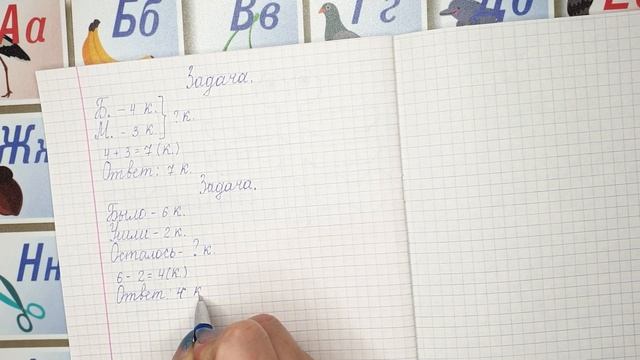 Аа
Бб
Вв
Гг
Жж
Нн
Задача.
Б. – 4 к.
М. – 3 к. } ? к.
4 + 3 = 7 (к.)
Ответ: 7 к.
Задача.
Было – 6 к.
– 2 к.
Осталось – ? к.
6 – 2 = 4 (к.)
Ответ: 4 к